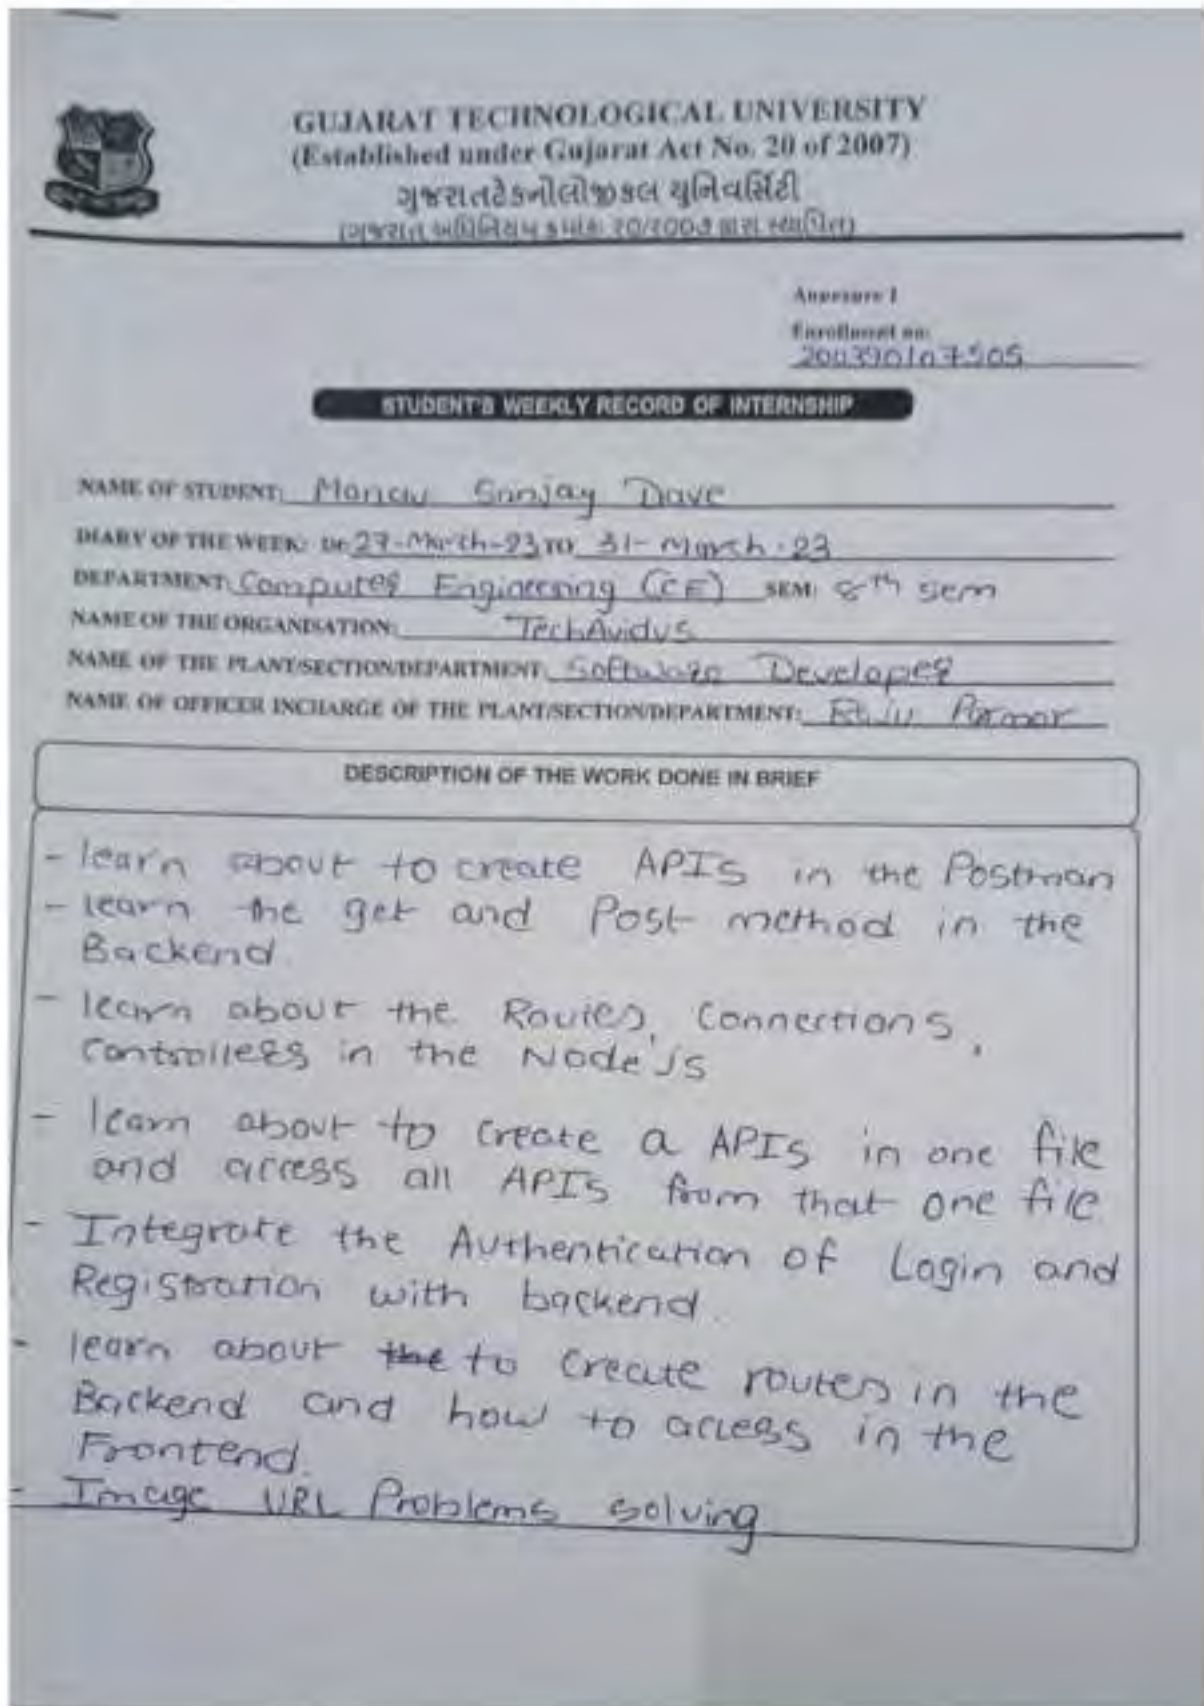 GUJARAT TECHNOLOGICAL UNIVERSITY
(Established under Gujarat Act No. 20 of 2007)
ગુજરાતટેકનોલોજીકલ યુનિવર્સિટી
(ગુજરાત અધિનિયમ ક્રમાંક: ૨૦/૨૦૦૭ દ્વારા સ્થાપિત)
Annexure I
Enrollment no:
200390107505
STUDENT'S WEEKLY RECORD OF INTERNSHIP
NAME OF STUDENT: Manav Sanjay Dave
DIARY OF THE WEEK: 27-March-23 TO 31-March-23
DEPARTMENT: Computer Engineering (CE) SEM: 8th sem
NAME OF THE ORGANISATION: TechAvidus
NAME OF THE PLANT/SECTION/DEPARTMENT: Software Developer
NAME OF OFFICER INCHARGE OF THE PLANT/SECTION/DEPARTMENT: Parmar
DESCRIPTION OF THE WORK DONE IN BRIEF
- learn about to create APIs in the Postman
- learn the get and Post method in the
Backend.
- learn about the Routes, Connections,
Controllers in the Node'js
- learn about to create a APIs in one file
and access all APIs from that one file
- Integrate the Authentication of Login and
Registration with backend.
- learn about the to create routes in the
Backend and how to access in the
Frontend.
- Image URL Problems solving